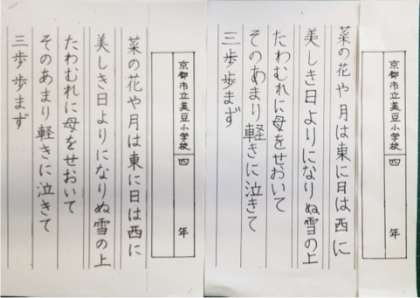 京都市立美豆小学校 四 年
菜の花や月は東に日は西に
美しき日よりになりぬ雪の上
たわむれに母をせおいて
そのあまり軽きに泣きて
三歩歩まず
京都市立美豆小学校 四 年
菜の花や月は東に日は西に
美しき日よりになりぬ雪の上
たわむれに母をせおいて
そのあまり軽きに泣きて
三歩歩まず